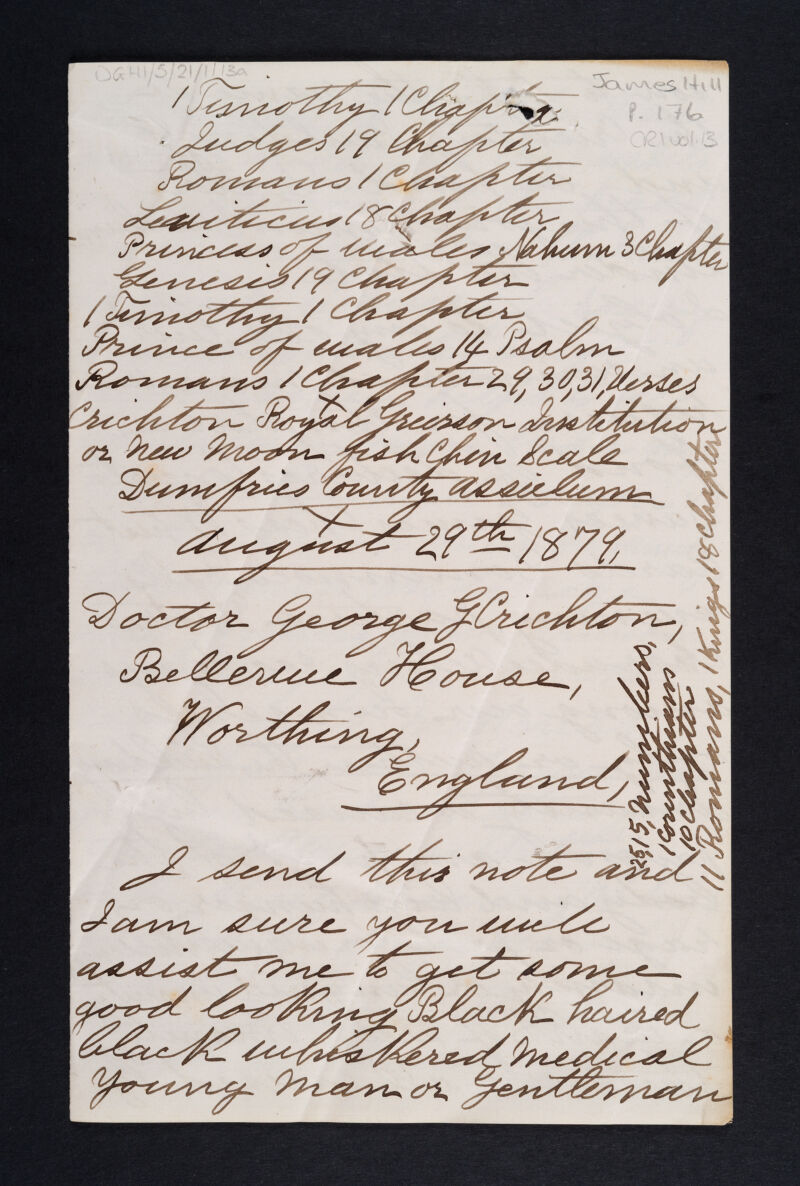 DGH1/5/21/1/13a
James Hill
P. 176
CR1 vol. 13
1 Timothy 1 Chapter
Judges 19 Chapter
Romans 1 Chapter
Leviticus 18 Chapter
Princess of wales Nahum 3 Chapter
Genesis 19 Chapter
1 Timothy 1 Chapter
Prince of wales 14 Psalm
Romans 1 Chapter 29, 30, 31, Verses
Crichton Royal Grierson Institution
or New Moon fish Chin Scale
Dumfries County Assielum
August 29th 1879,
Doctor George G Crichton,
Bellevue House,
Worthing,
England,
25, 15, Numbers,
1 Corinthians
10 Chapter
11 Romans, 1 Kings 18 Chapter
I send this note and
I am sure you will
assist me to get some
good looking Black haired
black whiskered medical
young man or Gentleman